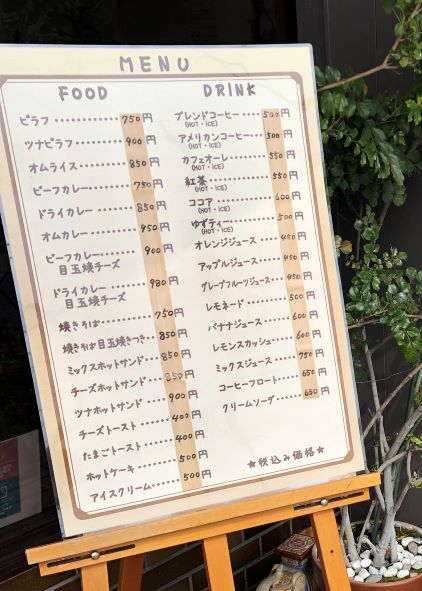 MENU
FOOD
ピラフ 750円
ツナピラフ 900円
オムライス 850円
ビーフカレー 750円
ドライカレー 850円
オムカレー 950円
ビーフカレー 900円
目玉焼チーズ
ドライカレー 980円
目玉焼チーズ
焼きそば 750円
焼きそば目玉焼きつき 850円
ミックスホットサンド 850円
チーズホットサンド 850円
ツナホットサンド 900円
チーズトースト 400円
たまごトースト 400円
ホットケーキ 500円
アイスクリーム 500円
DRINK
ブレンドコーヒー 500円
(HOT・ICE)
アメリカンコーヒー 500円
(HOT・ICE)
カフェオーレ 550円
(HOT・ICE)
紅茶 550円
(HOT・ICE)
ココア 600円
(HOT・ICE)
ゆずティー 500円
(HOT・ICE)
オレンジジュース 450円
アップルジュース 450円
グレープフルーツジュース 450円
レモネード 500円
バナナジュース 600円
レモンスカッシュ 600円
ミックスジュース 750円
コーヒーフロート 650円
クリームソーダ 650円
★税込み価格★